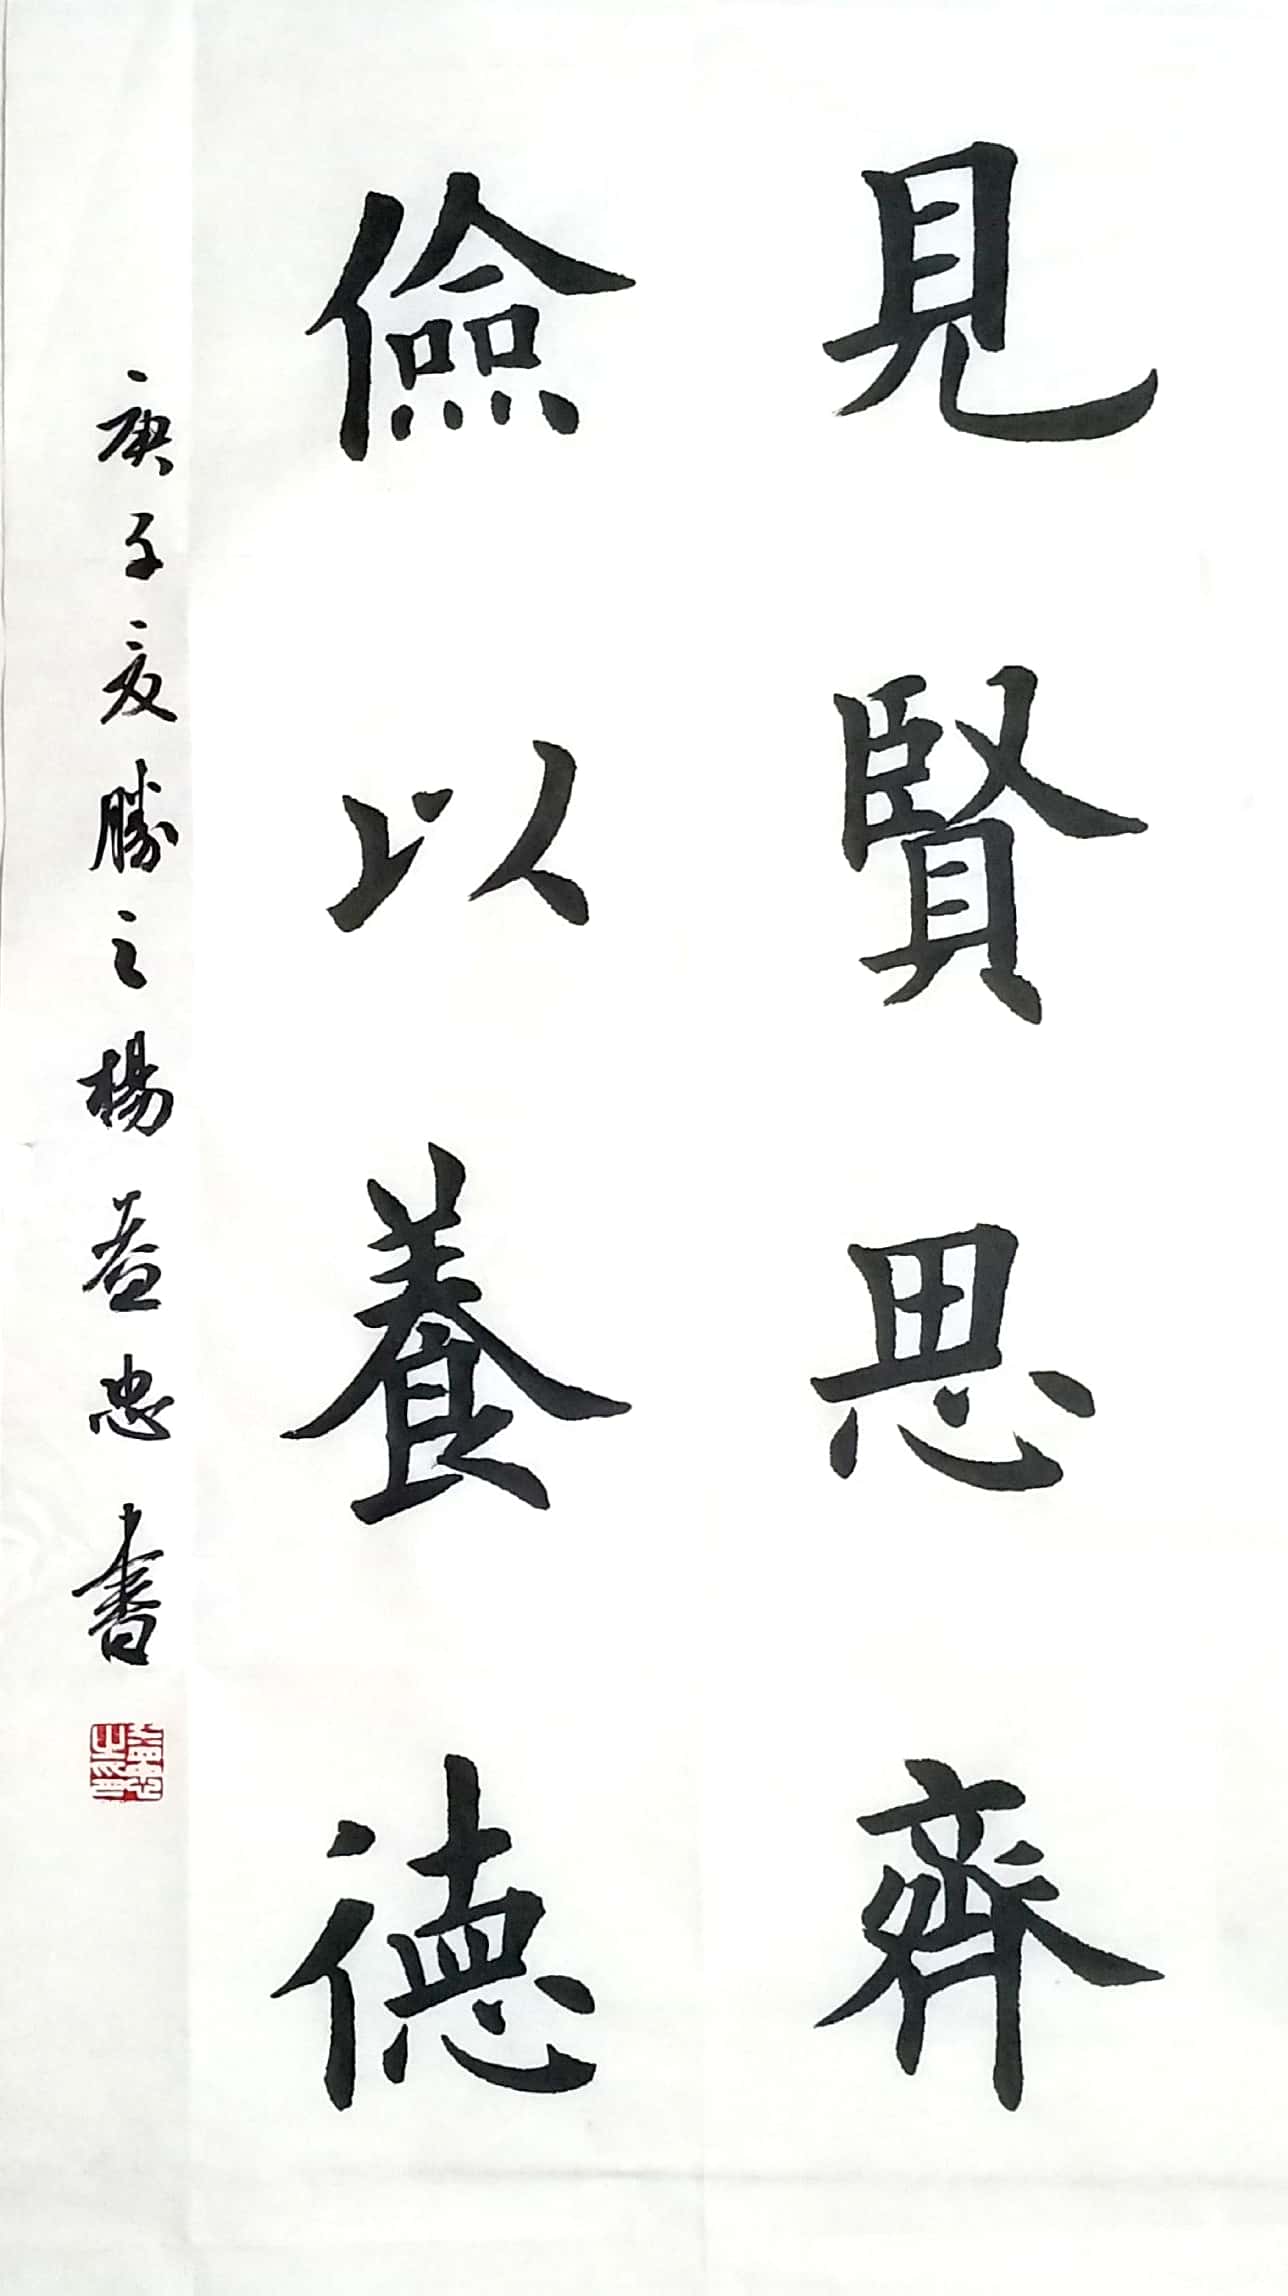 見賢思齊
儉以養德
庚子夏勝之楊益忠書